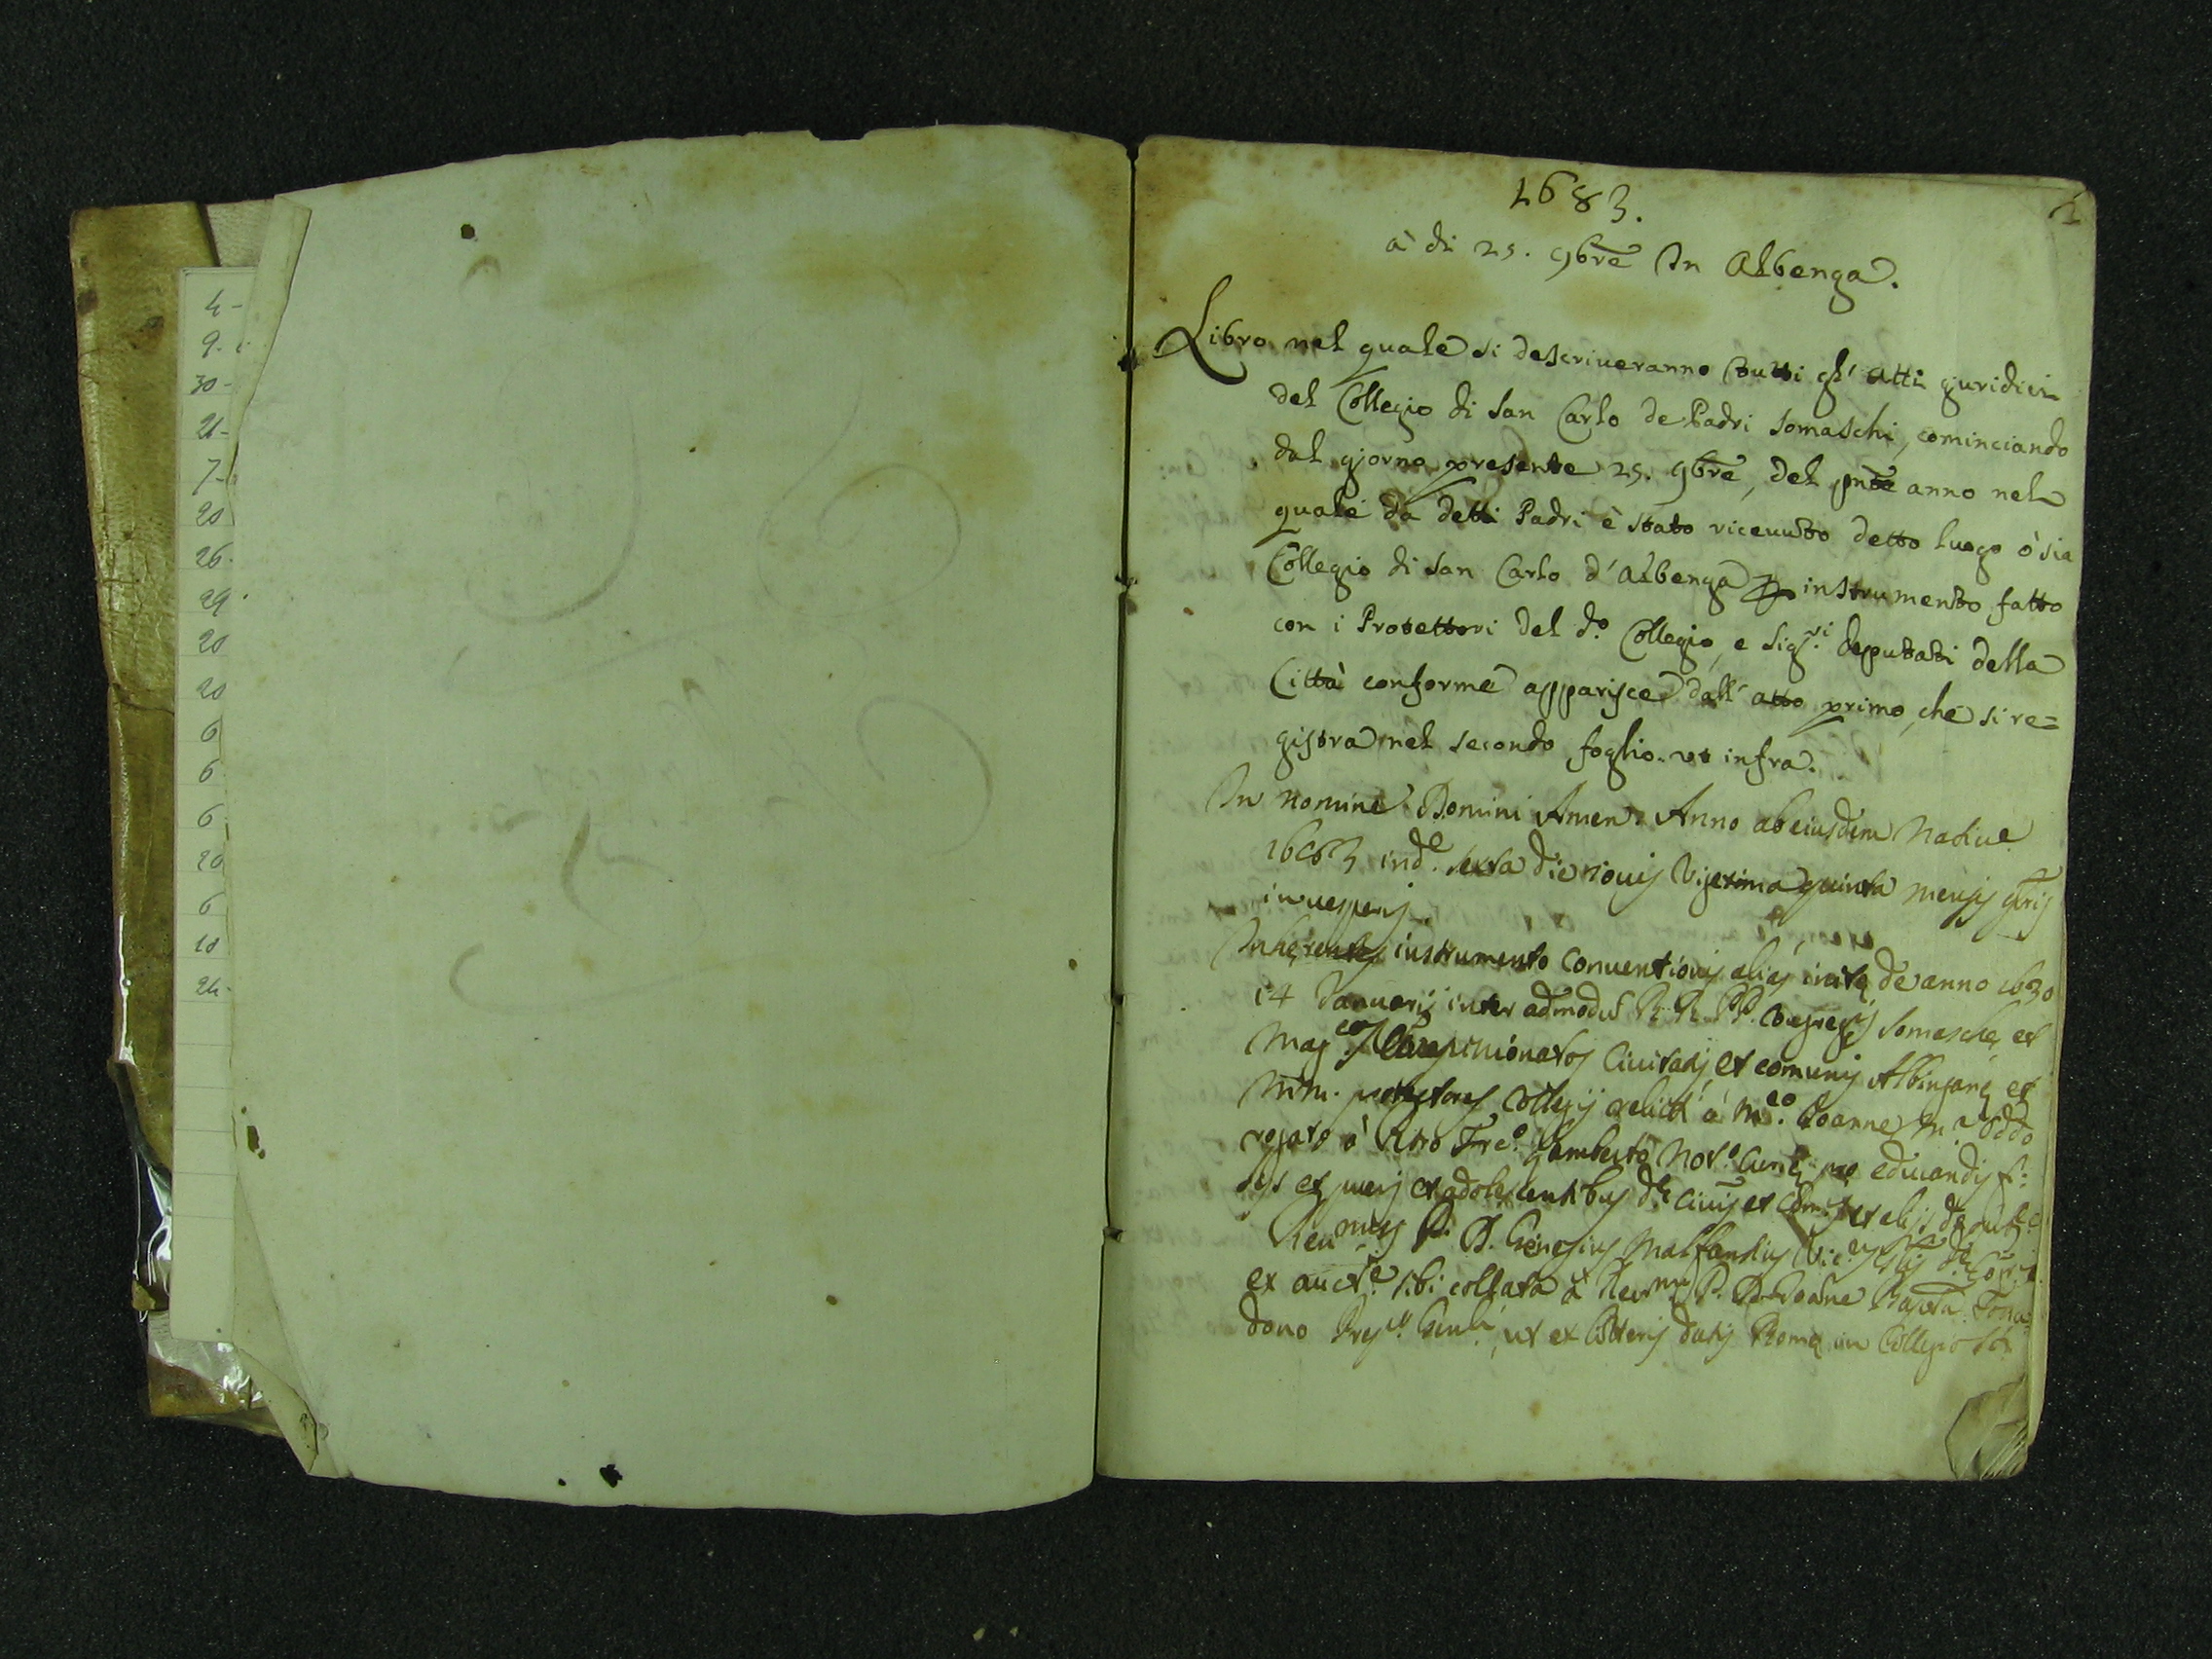 4 -
9.
30 -
21 -
7 -
20
26.
29.
20
20
6
6
6
20
6
10
24 -
1
1683.
à di 25. 9bre In Albenga.
Libro nel quale si descriveranno tutti gl' atti giuridici
del Collegio di San Carlo de Padri Somaschi, cominciando
dal giorno presente 25. 9bre, del pnte anno nel
quale da detti Padri è stato ricevuto detto luogo ò sia
Collegio di San Carlo d'Albenga p instrumento fatto
con i Protettori del d.o Collegio, e Sig.ri deputati della
Città conforme apparisce dall' atto primo, che si re=
gistra nel secondo foglio. ut infra.
In nomine Domini Amen. Anno ab eiusdem Nativ.e
1683 ind.e sexta die iovis Vigesima quinta mensis 9bris
in vesperis
Inherentes instrumento conventionis alias inite de anno 1630
14 Januarij inter admodu R. R. PP. Congreg.is Somasche et
Mag.cos civitatis et comunis Albingane et
MM. protectores Collegij relicti à M.co Joanne M. Oddo
rogato à Fr.co Gamberto Not.o pro educandis
et pueris et adolescentibus d.e civis et
Rev.mus P. D. Genesius Malfantius Vic.
ex auct.e sibi collata à Rev.mo P. D. Joane Bapta
dono Prep.to Genli, ut ex litteris datis Rome in Collegio